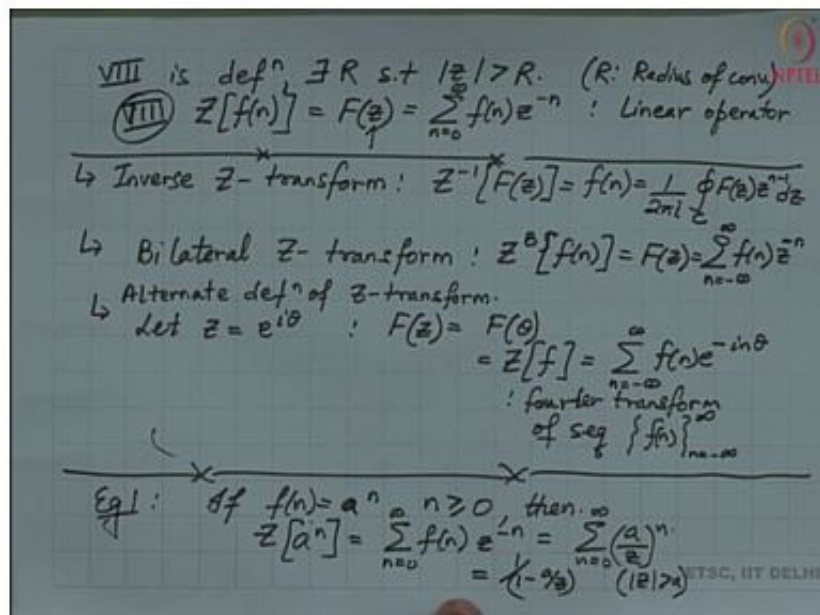 VIII is defⁿ, ∃ R s.t |z| > R. (R: Radius of conv)
NPTEL
(VIII) Z[f(n)] = F(z) = ∑_{n=0}^{∞} f(n) z^{-n} : Linear operator
↳ Inverse Z-transform : Z^{-1}[F(z)] = f(n) = 1/(2πi) ∮_C F(z) z^{n-1} dz
↳ Bilateral Z-transform : Z^B[f(n)] = F(z) = ∑_{n=-∞}^{∞} f(n) z^{-n}
↳ Alternate defⁿ of Z-transform.
Let z = e^{iθ} : F(z) = F(θ)
= Z[f] = ∑_{n=-∞}^{∞} f(n) e^{-inθ}
: fourier transform
of seq {f(n)}_{n=-∞}^{∞}
Eg1 : If f(n) = aⁿ, n ≥ 0, then.
Z[aⁿ] = ∑_{n=0}^{∞} f(n) z^{-n} = ∑_{n=0}^{∞} (a/z)ⁿ.
= 1/(1 - a/z) (|z| > a)
ETSC, IIT DELHI